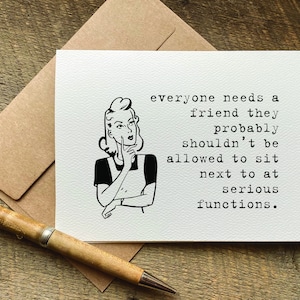 everyone needs a
friend they
probably
shouldn't be
allowed to sit
next to at
serious
functions.